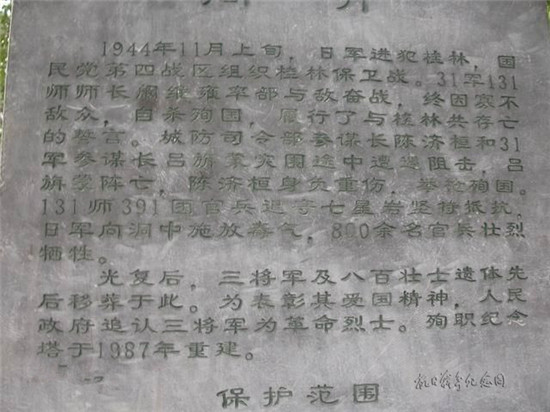 1944年11月上旬，日军进犯桂林，国
民党第四战区组织桂林保卫战。31军131
师师长阚继雍率部与敌奋战，终因寡不
敌众，自杀殉国，履行了与桂林共存亡
的誓言。城防司令部参谋长陈济桓和31
军参谋长吕旃蒙突围途中遭遇阻击，吕
旃蒙阵亡，陈济桓身负重伤，举枪殉国。
131师391团官兵退守七星岩坚持抵抗，
日军向洞中施放毒气，800余名官兵壮烈
牺牲。
光复后，三将军及八百壮士遗体先
后移葬于此。为表彰其爱国精神，人民
政府追认三将军为革命烈士。殉职纪念
塔于1987年重建。
抗日战争纪念网
保护范围